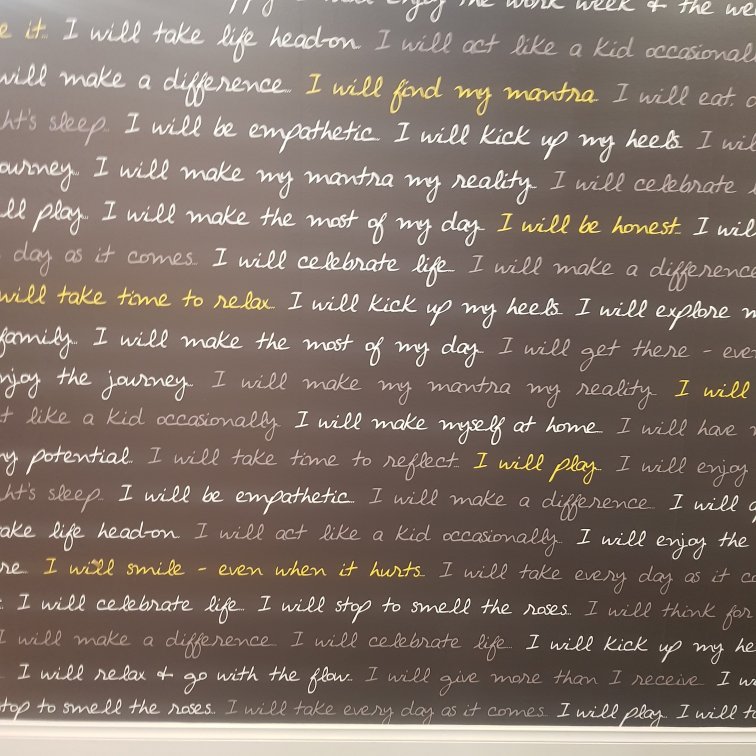 enjoy the work week + the we
e it. I will take life head-on. I will act like a kid occasionall
will make a difference. I will find my mantra. I will eat,
ht's sleep. I will be empathetic. I will kick up my heels. I wil
ourney. I will make my mantra my reality. I will celebrate
ll play. I will make the most of my day. I will be honest. I wil
day as it comes. I will celebrate life. I will make a difference
will take time to relax. I will kick up my heels. I will explore
family. I will make the most of my day. I will get there - eve
njoy the journey. I will make my mantra my reality. I will
t like a kid occasionally. I will make myself at home. I will have
y potential. I will take time to reflect. I will play. I will enjoy
ht's sleep. I will be empathetic. I will make a difference. I will
ake life head-on. I will act like a kid occasionally. I will enjoy the
re. I will smile - even when it hurts. I will take every day as it c
. I will celebrate life. I will stop to smell the roses. I will think for
I will make a difference. I will celebrate life. I will kick up my he
. I will relax + go with the flow. I will give more than I receive. I w
top to smell the roses. I will take every day as it comes. I will play. I will t